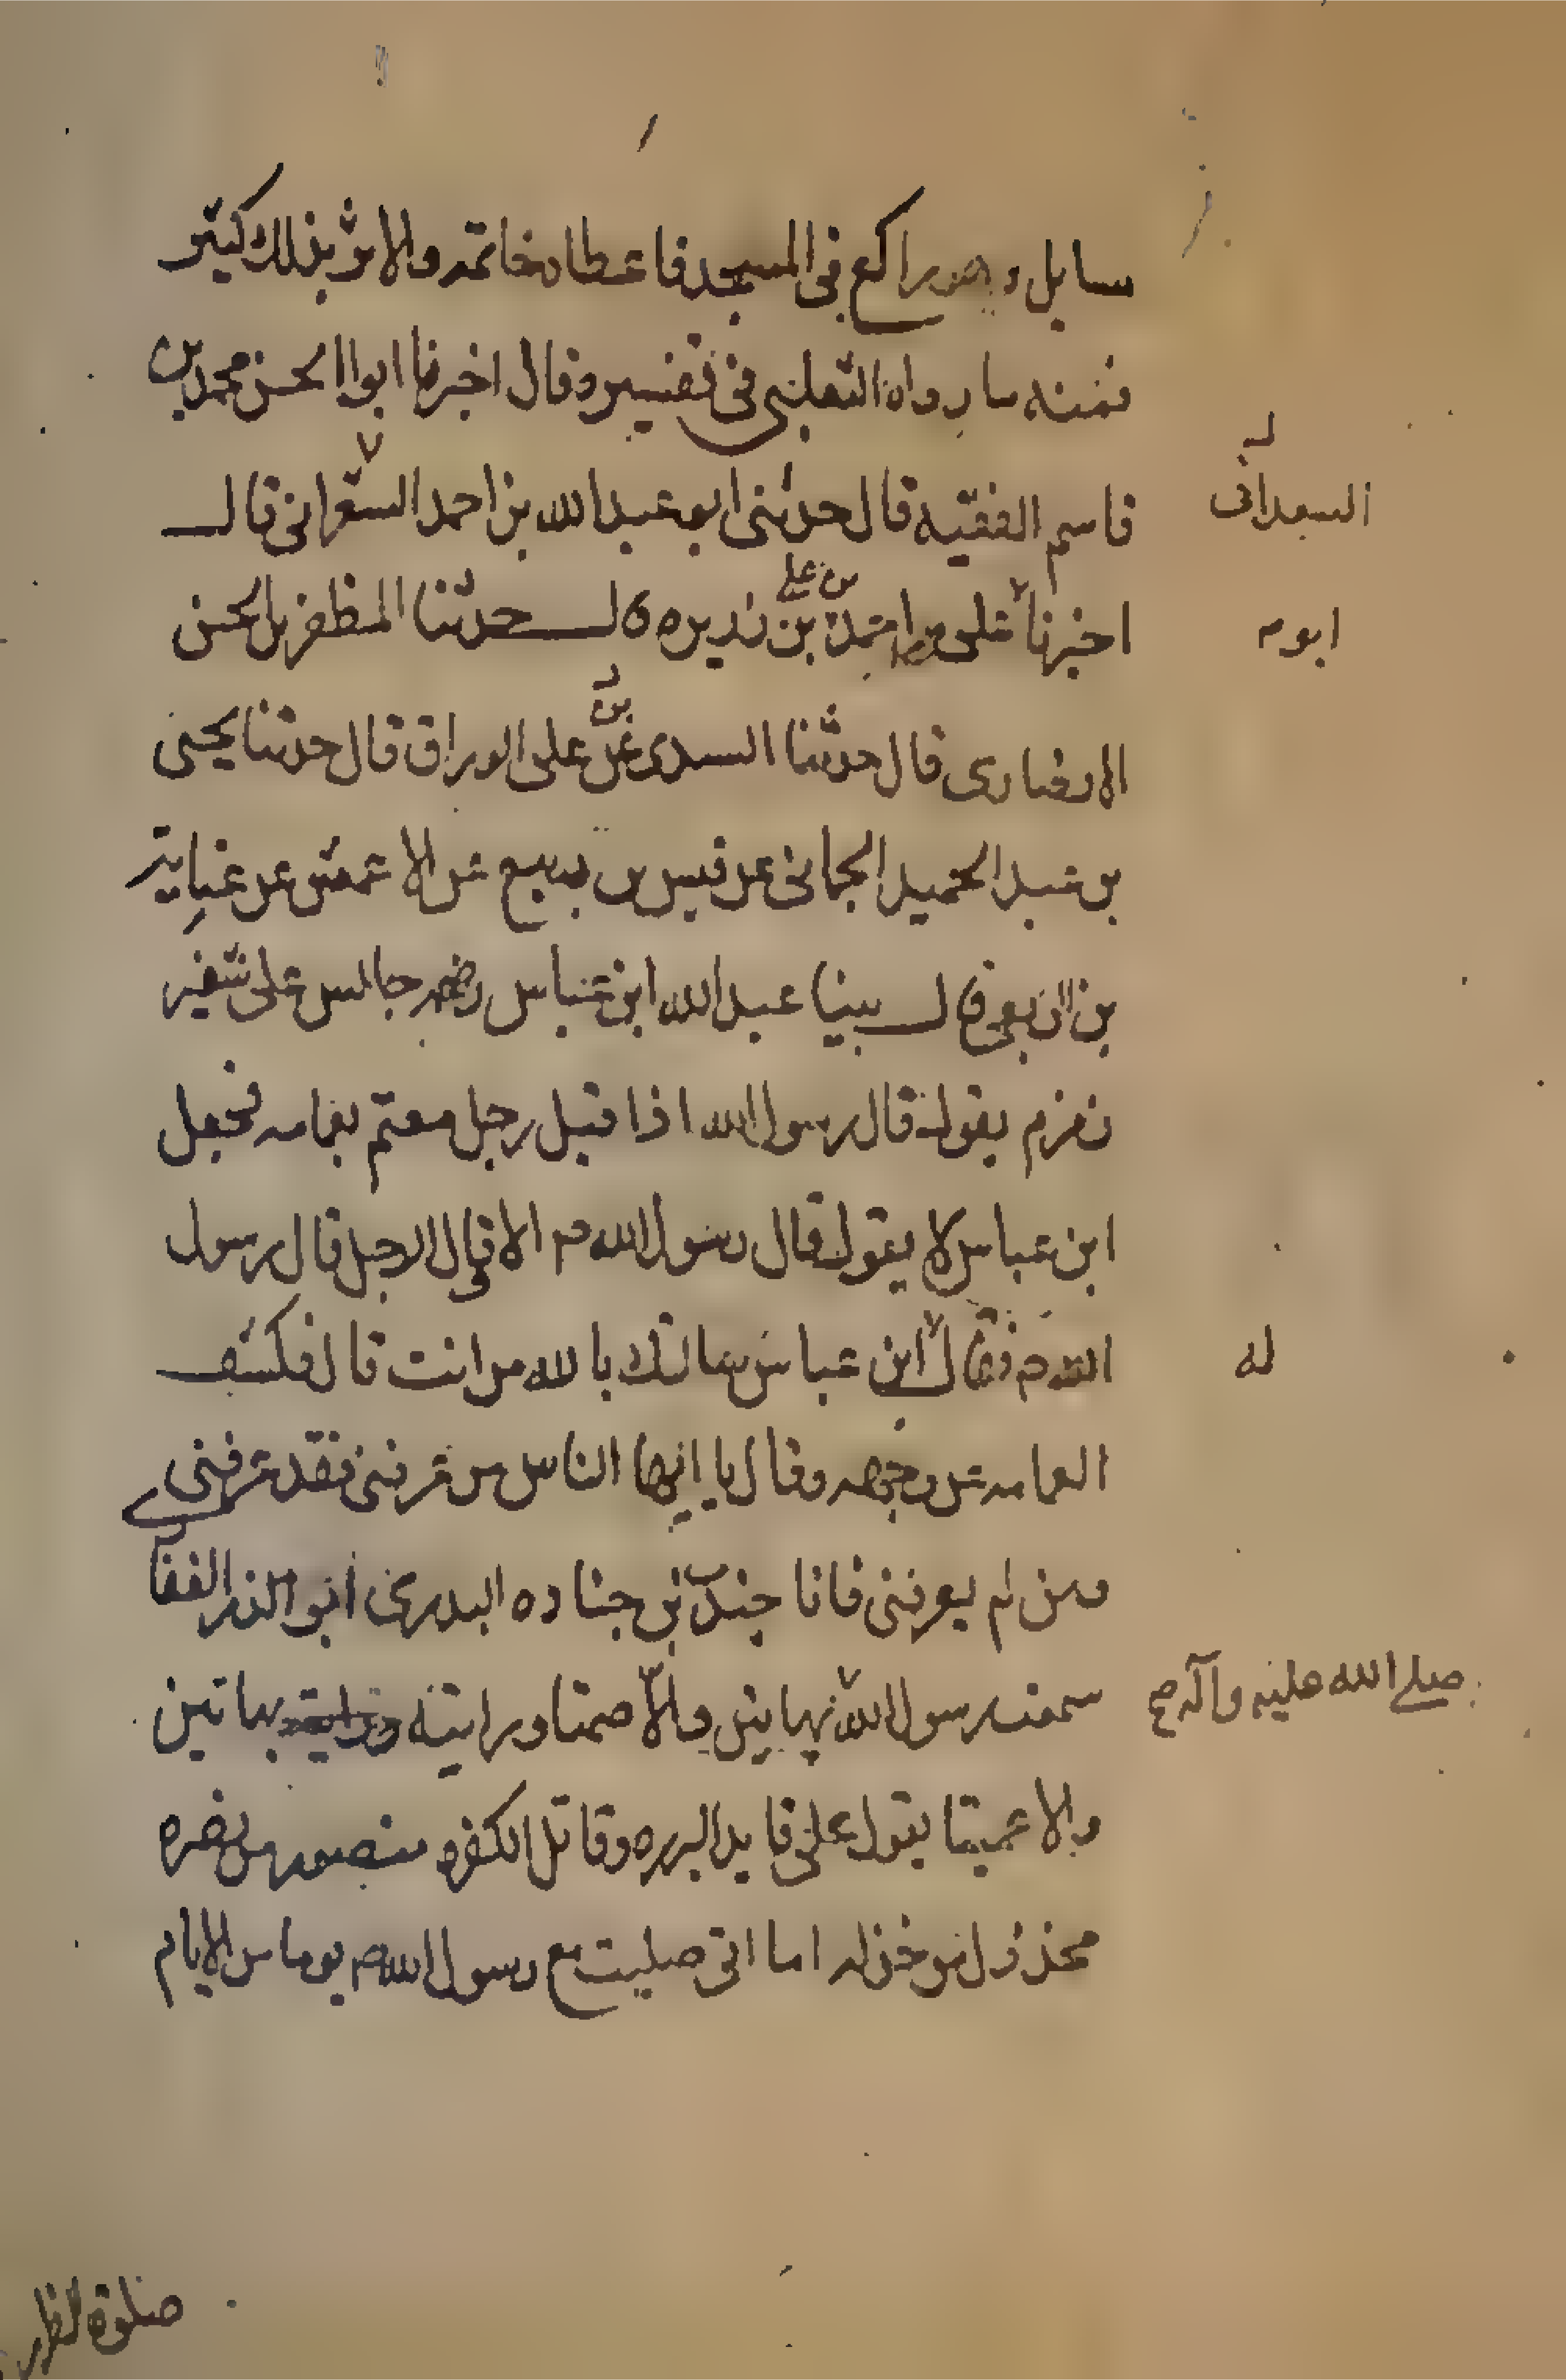 سايل وهو راكع في المسجد فاعطاه خاتمه والاثر بذلك كثير
فمنه ما رواه الثعلبي في تفسيره قال اخبرنا ابو الحسن محمد بن
قاسم الفقيه قال حدثني ابو عبد الله بن احمد الشعراني قال
السعدانی
اخبرنا علی بن احمد بن علي بن رزين قال حدثنا المظفر بن الحسن
ابو م
الانصاری قال حدثنا السدی بن علی الوراق قال حدثنا يحيى
بن عبد الحميد الجمانی عن قيس بن ربيع عن الاعمش عن عباية
بن الربعي قال بينا عبد الله ابن عباس رضه جالس على شفير
زمزم يقول قال رسول الله اذا قبل رجل معتم بعمامه فجعل
ابن عباس لا يقول قال رسول الله م الا قال الرجل قال رسول
الله م فقال ابن عباس سالتك بالله من انت قال فكشف
له
العمامه عن وجهه وقال يا ايها الناس من عرفنی فقد عرفنی
ومن لم يعرفنی فانا جندب بن جناده البدری ابو الذر الغفاری
سمعت رسول الله بهاتين والا صمتا ورايته بهاتين
صلی الله عليه وآله صح
والا عميتا يقول علی قايد البرره وقاتل الكفره منصور من نصره
مخذول من خذله اما انی صليت مع رسول الله م يوما من الايام
صلوة الظهر